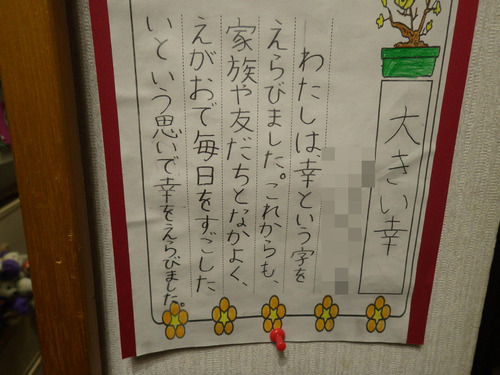 大きい幸
わたしは、幸という字を
えらびました。これからも、
家族や友だちとなかよく、
えがおで毎日をすごした
いという思いで幸をえらびました。